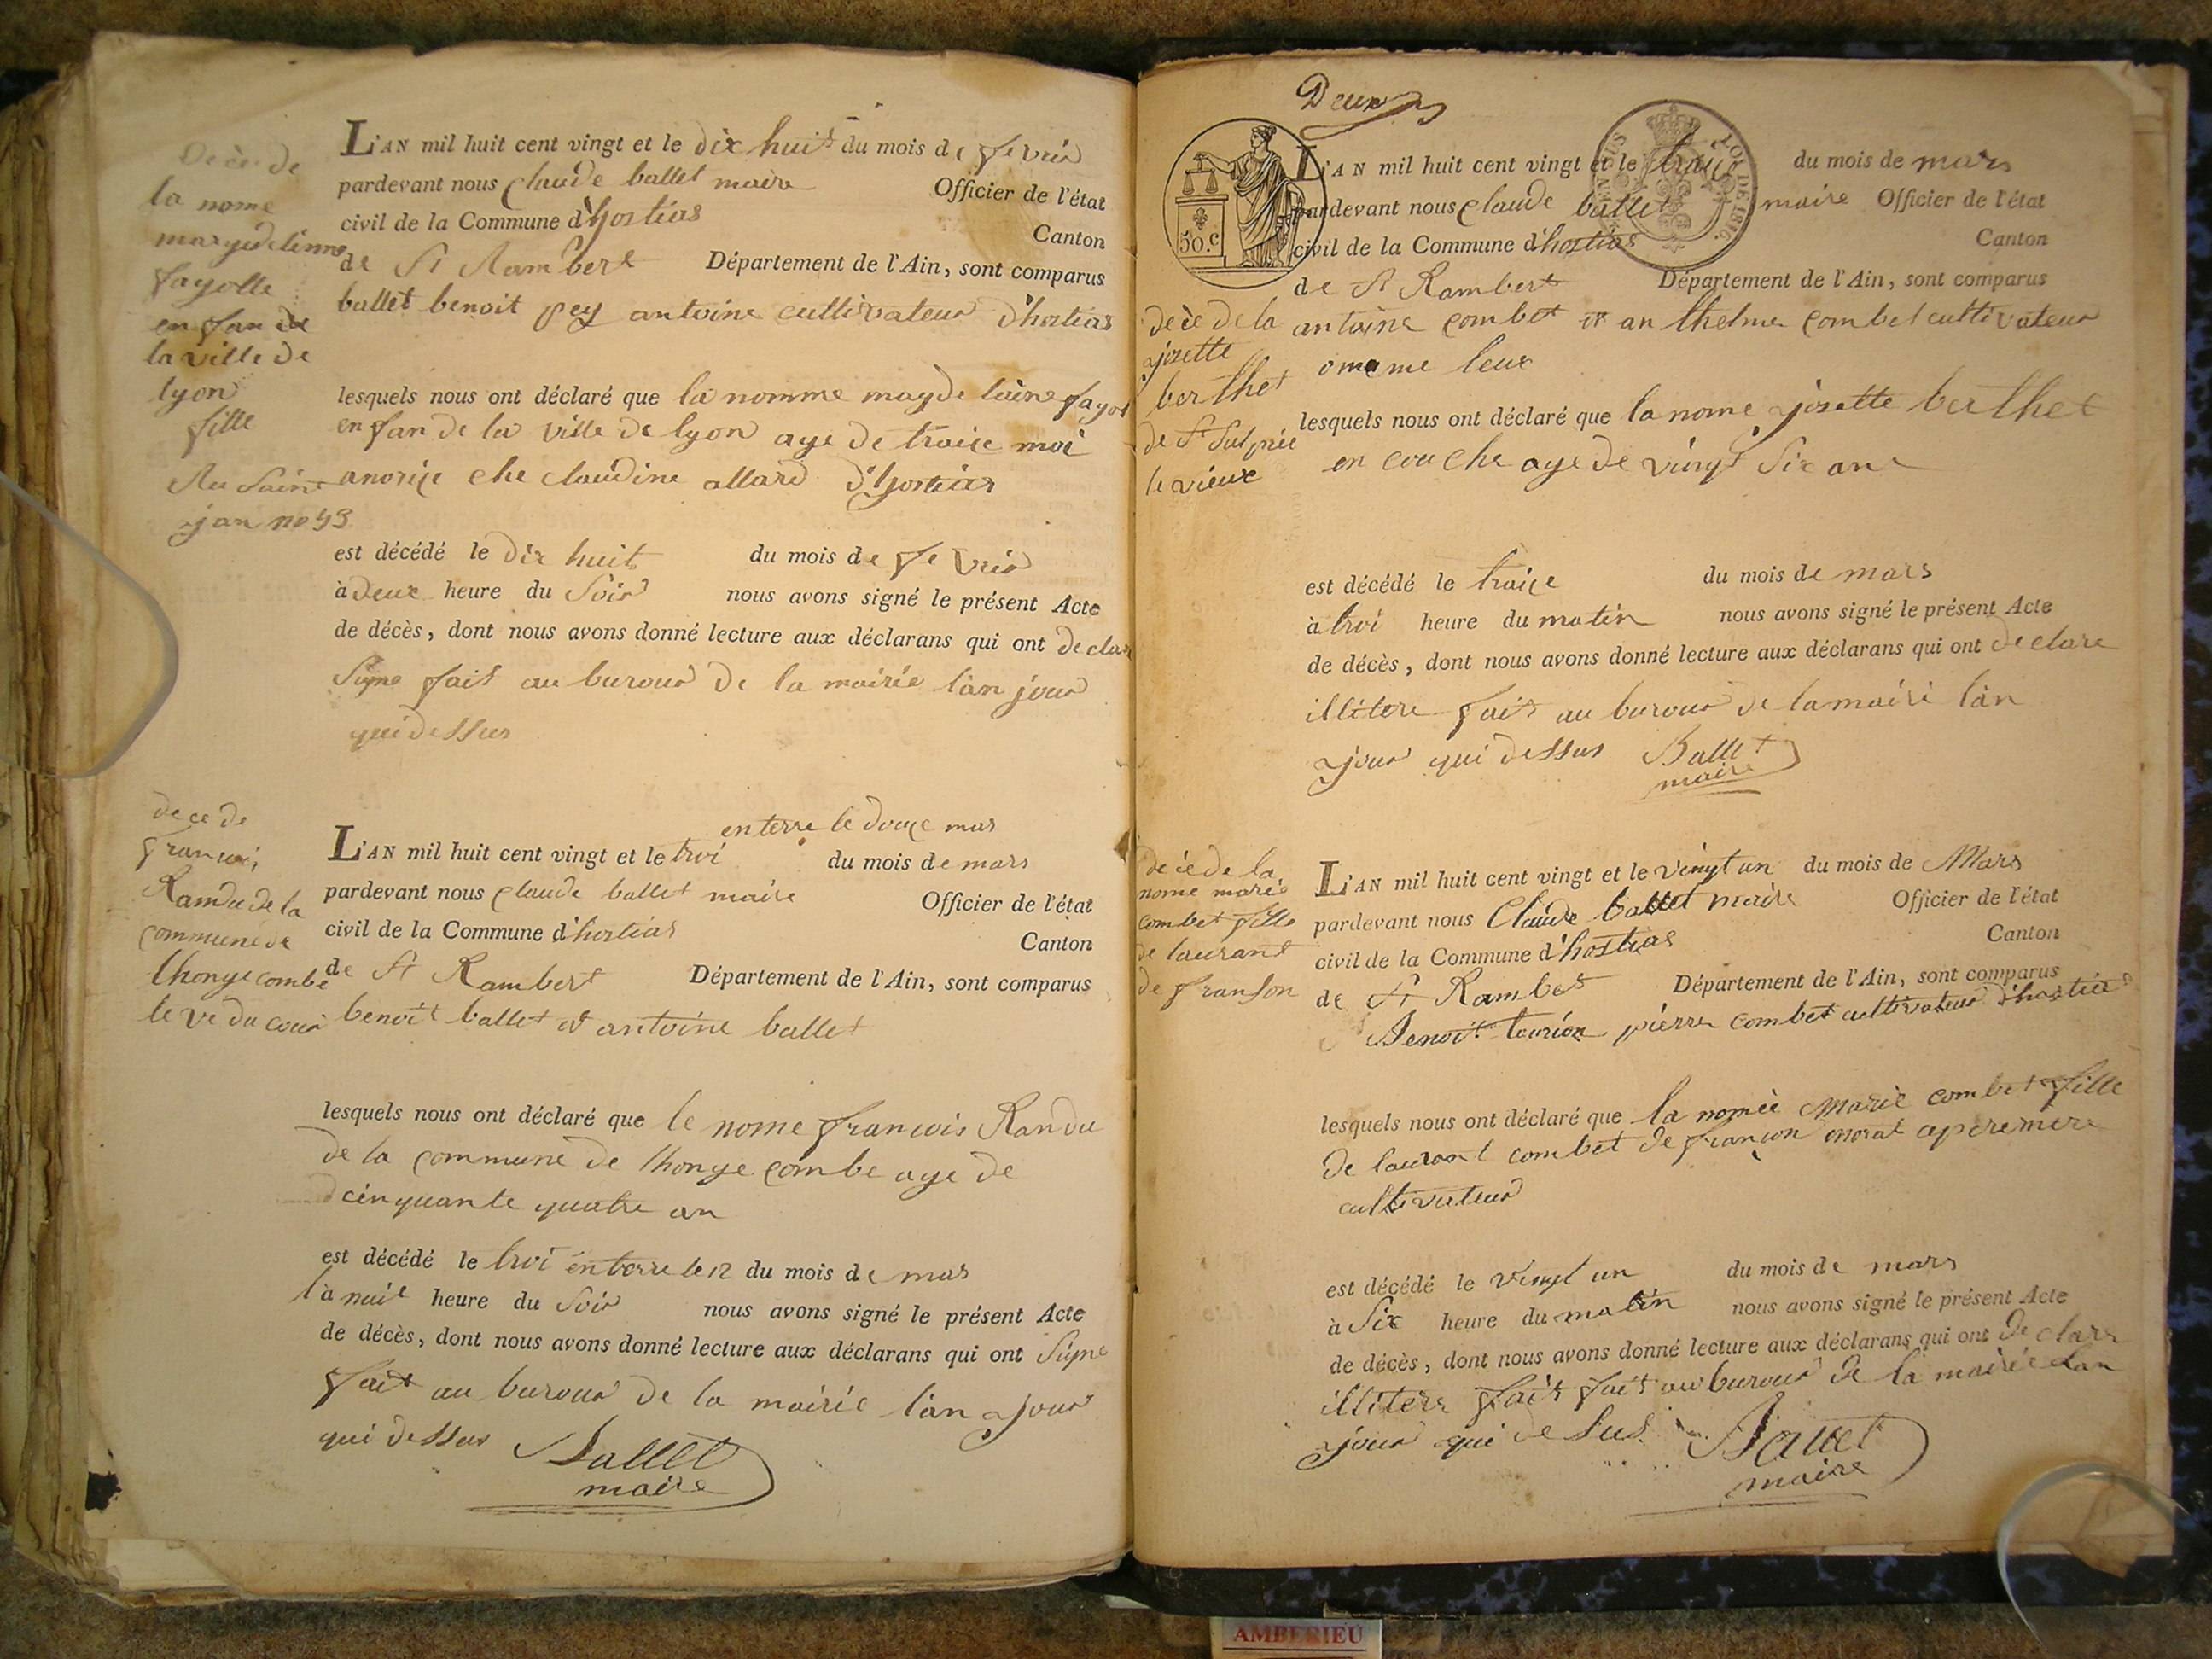 Decè de
la nome
magdelinne
fayolle
enfan de
la ville de
lyon
fille
Au Sain
jan no 43
L'AN mil huit cent vingt et le dix huit du mois de fevrié
pardevant nous claude ballet maire Officier de l'état
civil de la Commune d'hostias Canton
de St Rambert Département de l'Ain, sont comparus
ballet benoit pey antoine cultivateur d'hostias
lesquels nous ont déclaré que la nomme magdelaine fayol
enfan de la ville de lyon age de traize moi
anorice che claudine allard d'hostias
est décédé le dix huit du mois de fevrié
à deux heure du Soir nous avons signé le présent Acte
de décès, dont nous avons donné lecture aux déclarans qui ont declar
Signe fait au burour de la mairie l'an jour
qui dessus
dece de
francois
Randu de la
commune de
thongecombe
le ve du cour
enterre le douze mars
L'AN mil huit cent vingt et le troi du mois de mars
pardevant nous claude ballet maire Officier de l'état
civil de la Commune d'hostias Canton
de St Rambert Département de l'Ain, sont comparus
benoit ballet et antoine ballet
lesquels nous ont déclaré que le nome francois Randu
de la commune de thonge combe age de
cinquante quatre an
est décédé le troi enterre le 12 du mois de mars
à nuit heure du Soir nous avons signé le présent Acte
de décès, dont nous avons donné lecture aux déclarans qui ont Signe
fait au burour de la mairie l'an jour
qui dessus Ballet
maire
Deux
50.C
LOI DE 1816.
L'AN mil huit cent vingt et le traize du mois de mars
pardevant nous claude ballet maire Officier de l'état
civil de la Commune d'hostias Canton
de St Rambert Département de l'Ain, sont comparus
decè de la
josette
berthet
de St Sulpice
le vieux
antoine combet et anthelme combet cultivateur
omeme leux
lesquels nous ont déclaré que la nome josette berthet
en couche age de vingt Six ans
est décédé le traize du mois de mars
à troi heure du matin nous avons signé le présent Acte
de décès, dont nous avons donné lecture aux déclarans qui ont declare
illitere fait au burour de la mairi l'an
jour qui dessus Ballet
maire
decè de la
nome marie
combet fille
de laurant
de franson
L'AN mil huit cent vingt et le vingt un du mois de Mars
pardevant nous Claude ballet maire Officier de l'état
civil de la Commune d'hostias Canton
de St Rambert Département de l'Ain, sont comparus
Benoit pierre combet cultivateur d'hostias
lesquels nous ont déclaré que la nomèe marie combet fille
de laurant combet de françon
cultivateur
est décédé le vingt un du mois de mars
à Six heure du matin nous avons signé le présent Acte
de décès, dont nous avons donné lecture aux déclarans qui ont declare
illitere fait fait au burour de la mairie l'an
jour qui desus Ballet
maire
AMBERIEU